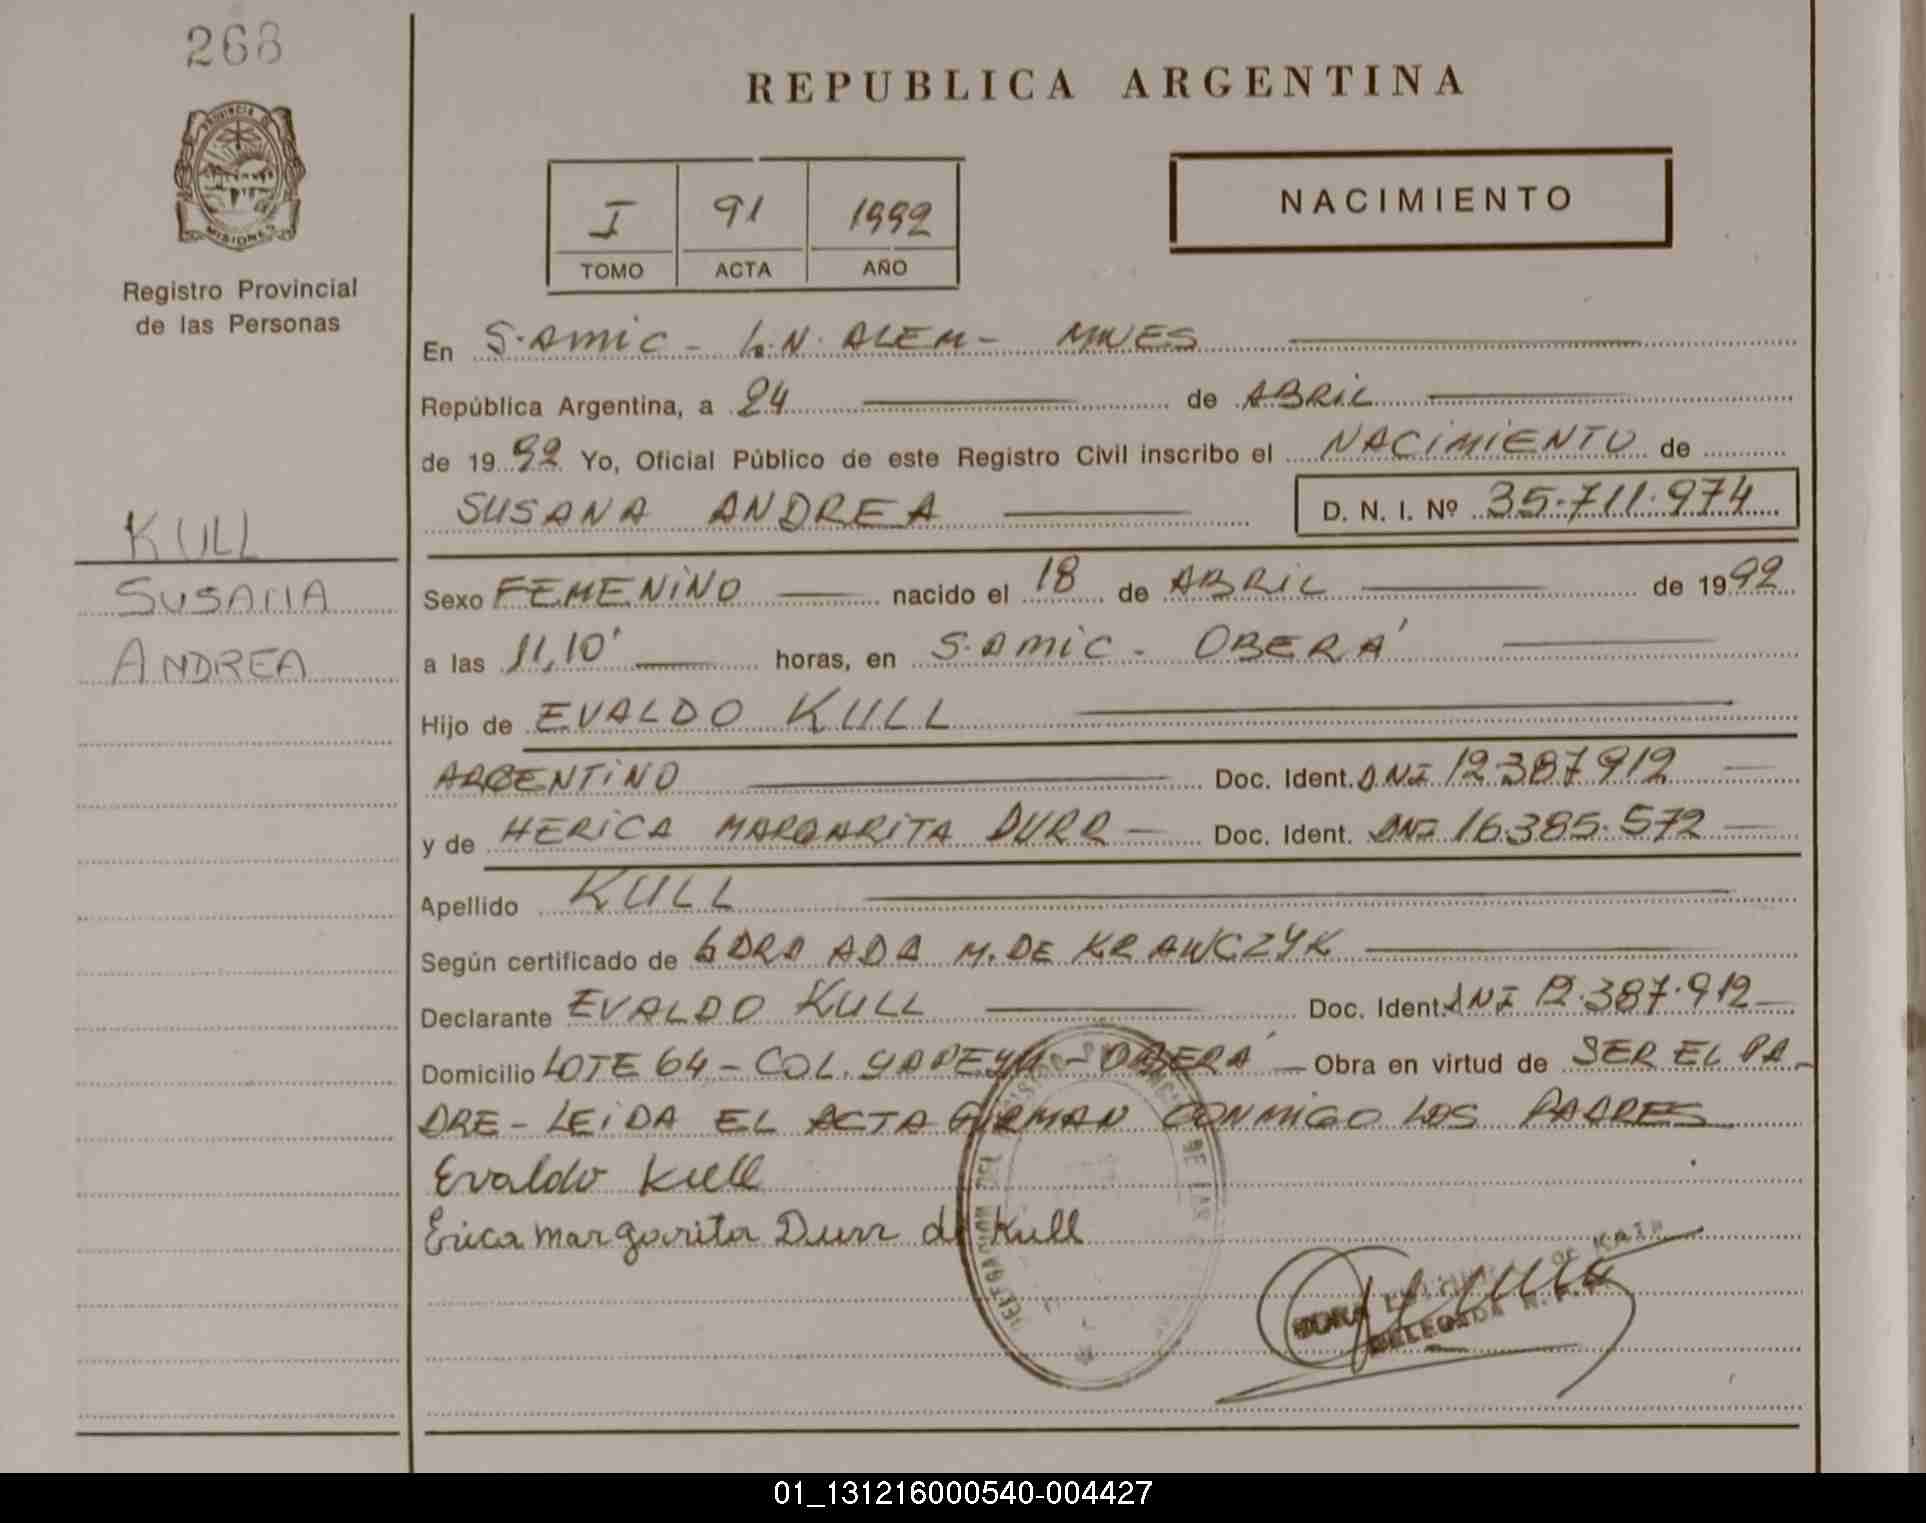 268
PROVINCIA DE
MISIONES
Registro Provincial
de las Personas
KULL
SUSANA
ANDREA
REPUBLICA ARGENTINA
I 91 1992
TOMO ACTA AÑO
NACIMIENTO
En S. AMIC - L.N. ALEM - MNES
República Argentina, a 24 de ABRIL
de 1992 Yo, Oficial Público de este Registro Civil inscribo el NACIMIENTO de
SUSANA ANDREA D. N. I. Nº 35.711.974
Sexo FEMENINO nacido el 18 de ABRIL de 1992
a las 11,10' horas, en S. AMIC - OBERA'
Hijo de EVALDO KULL
ARGENTINO Doc. Ident. DNI 12.387.912
y de HERICA MARGARITA DURR Doc. Ident. DNI 16.385.572
Apellido KULL
Según certificado de ADA M. DE KRAWCZYK
Declarante EVALDO KULL Doc. Ident. DNI 12.387.912
Domicilio LOTE 64 - COL. YAPEYU - OBERA' Obra en virtud de SER EL PA-
DRE - LEIDA EL ACTA FIRMAN CONMIGO LOS PADRES
Evaldo Kull
Erica Margarita Durr de Kull
DELEGACION DEL REGISTRO PROVINCIAL DE LAS
DELEGADA
01_131216000540-004427